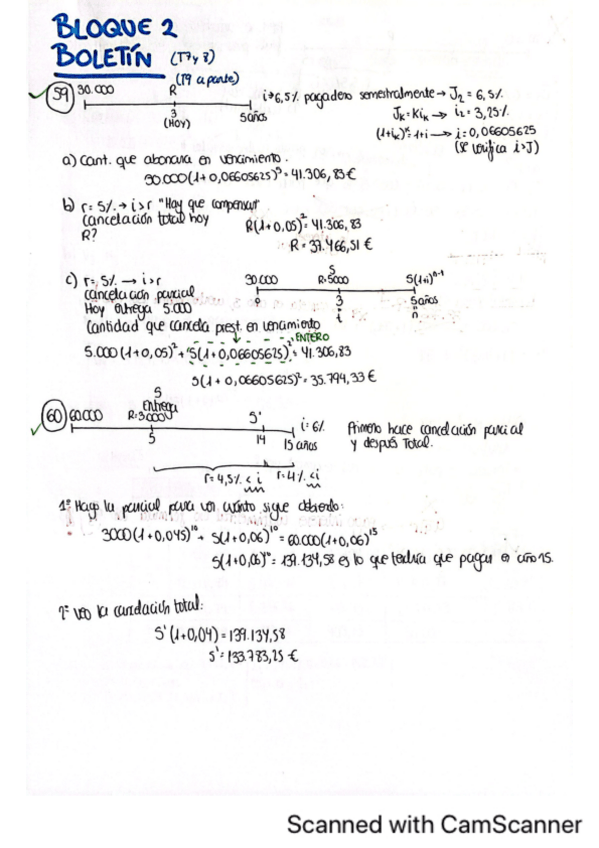 BLOQUE 2
BOLETÍN (T7 y 8)
(T9 aparte)
59 30.000 R
3 5 años
(Hoy)
i→6,5% pagadero semestralmente → J₂ = 6,5%
Jₖ = Kiₖ → i₂ = 3,25%
(1+iₖ)ᵏ = 1+i → i = 0,06605625
(Se verifica i>J)
a) Cant. que abonaría en vencimiento.
30.000(1+0,06605625)⁵ = 41.306,83€
b) r = 5% → i>r "Hay que compensar
cancelación total hoy
R?
R(1+0,05)² = 41.306,83
R = 37.466,51 €
c) r = 5% → i>r
cancelación parcial
Hoy entrega 5.000
Cantidad que cancela prest. en vencimiento
30.000 S R=5000 S(1+i)ⁿ⁻ᵗ
0 3 5 años
t n
ENTERO
5.000(1+0,05)² + S(1+0,06605625)² = 41.306,83
S(1+0,06605625)² = 35.794,33 €
60 60.000 S
Entrega
R=3000 S'
5 14 15 años
i = 6%
Primero hace cancelación parcial
y después Total.
r = 4,5% < i r = 4% < i
1º Hago la parcial para ver cuánto sigue debiendo:
3000(1+0,045)¹⁰ + S(1+0,06)¹⁰ = 60.000(1+0,06)¹⁵
S(1+0,06)¹⁰ = 139.134,58 es lo que tendría que pagar en año 15.
2º veo la cancelación total:
S'(1+0,04) = 139.134,58
S' = 133.783,25 €
Scanned with CamScanner